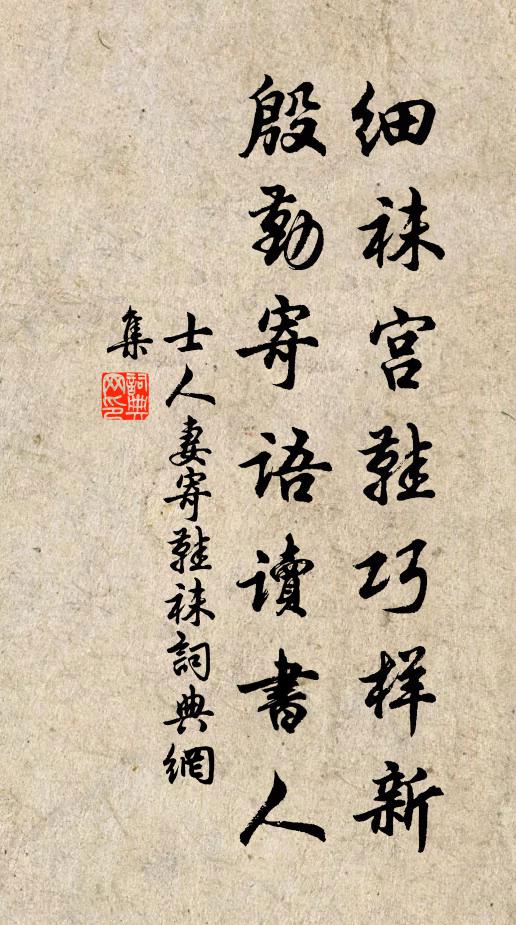 细袜宫鞋巧样新
殷勤寄语读書人
士人妻寄鞋袜詞典網
集
詞典
网印